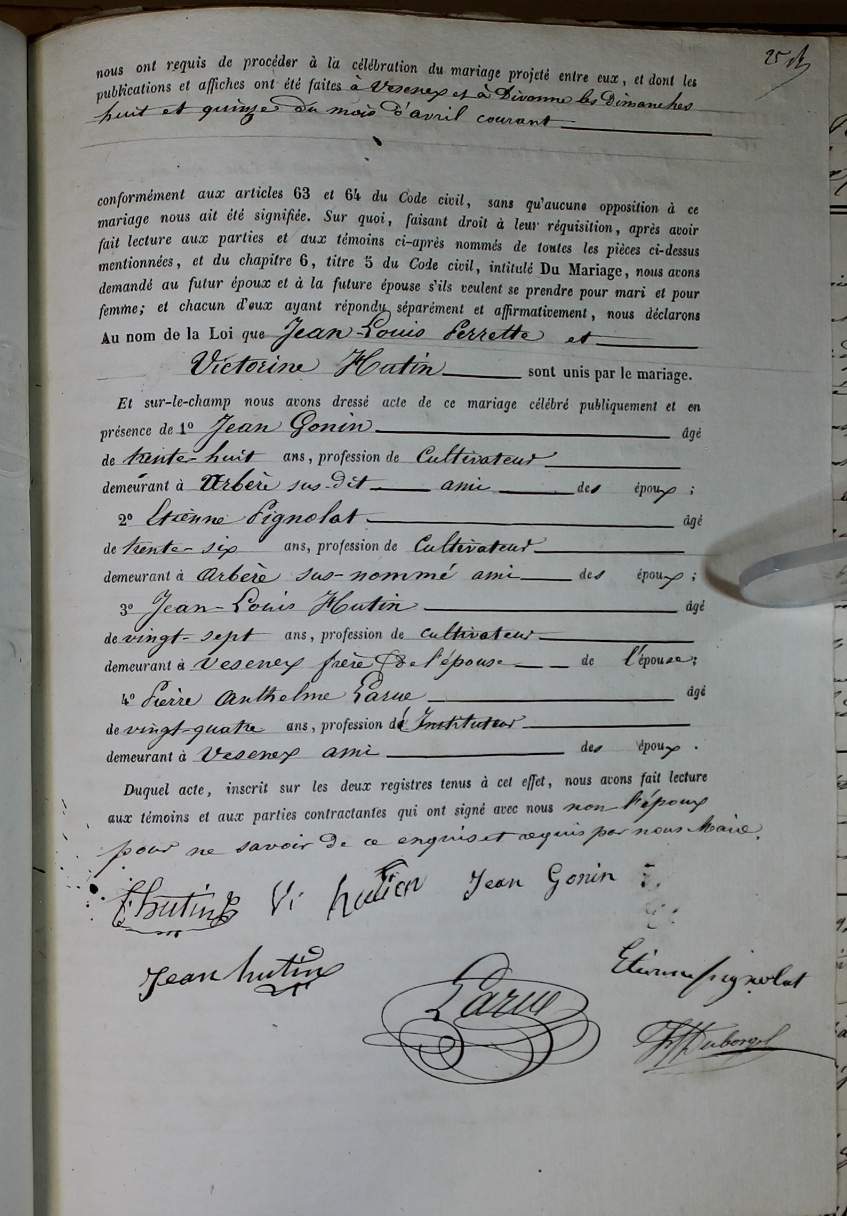 25
nous ont requis de procéder à la célébration du mariage projeté entre eux, et dont les
publications et affiches ont été faites à Vesenex et à Divonne les Dimanches
huit et quinze du mois d'avril courant
conformément aux articles 63 et 64 du Code civil, sans qu'aucune opposition à ce
mariage nous ait été signifiée. Sur quoi, faisant droit à leur réquisition, après avoir
fait lecture aux parties et aux témoins ci-après nommés de toutes les pièces ci-dessus
mentionnées, et du chapitre 6, titre 5 du Code civil, intitulé Du Mariage, nous avons
demandé au futur époux et à la future épouse s'ils veulent se prendre pour mari et pour
femme; et chacun d'eux ayant répondu séparément et affirmativement, nous déclarons
Au nom de la Loi que Jean-Louis Perrette et
Victorine Hutin sont unis par le mariage.
Et sur-le-champ nous avons dressé acte de ce mariage célébré publiquement et en
présence de 1º Jean Gonin âgé
de trente-huit ans, profession de Cultivateur
demeurant à Arbère sus-dit ami des époux ;
2º Etienne Pignolat âgé
de trente-six ans, profession de Cultivateur
demeurant à Arbère sus-nommé ami des époux ;
3º Jean-Louis Hutin âgé
de vingt-sept ans, profession de cultivateur
demeurant à Vesenex frère de l'épouse de l'épouse ;
4º Pierre Anthelme Larue âgé
de vingt-quatre ans, profession d'Instituteur
demeurant à Vesenex ami des époux .
Duquel acte, inscrit sur les deux registres tenus à cet effet, nous avons fait lecture
aux témoins et aux parties contractantes qui ont signé avec nous non l'époux
pour ne savoir de ce enquis et requis par nous Maire.
hutin Vi hutin Jean Gonin
Jean hutin Larue Etienne pignolat
Duborgel